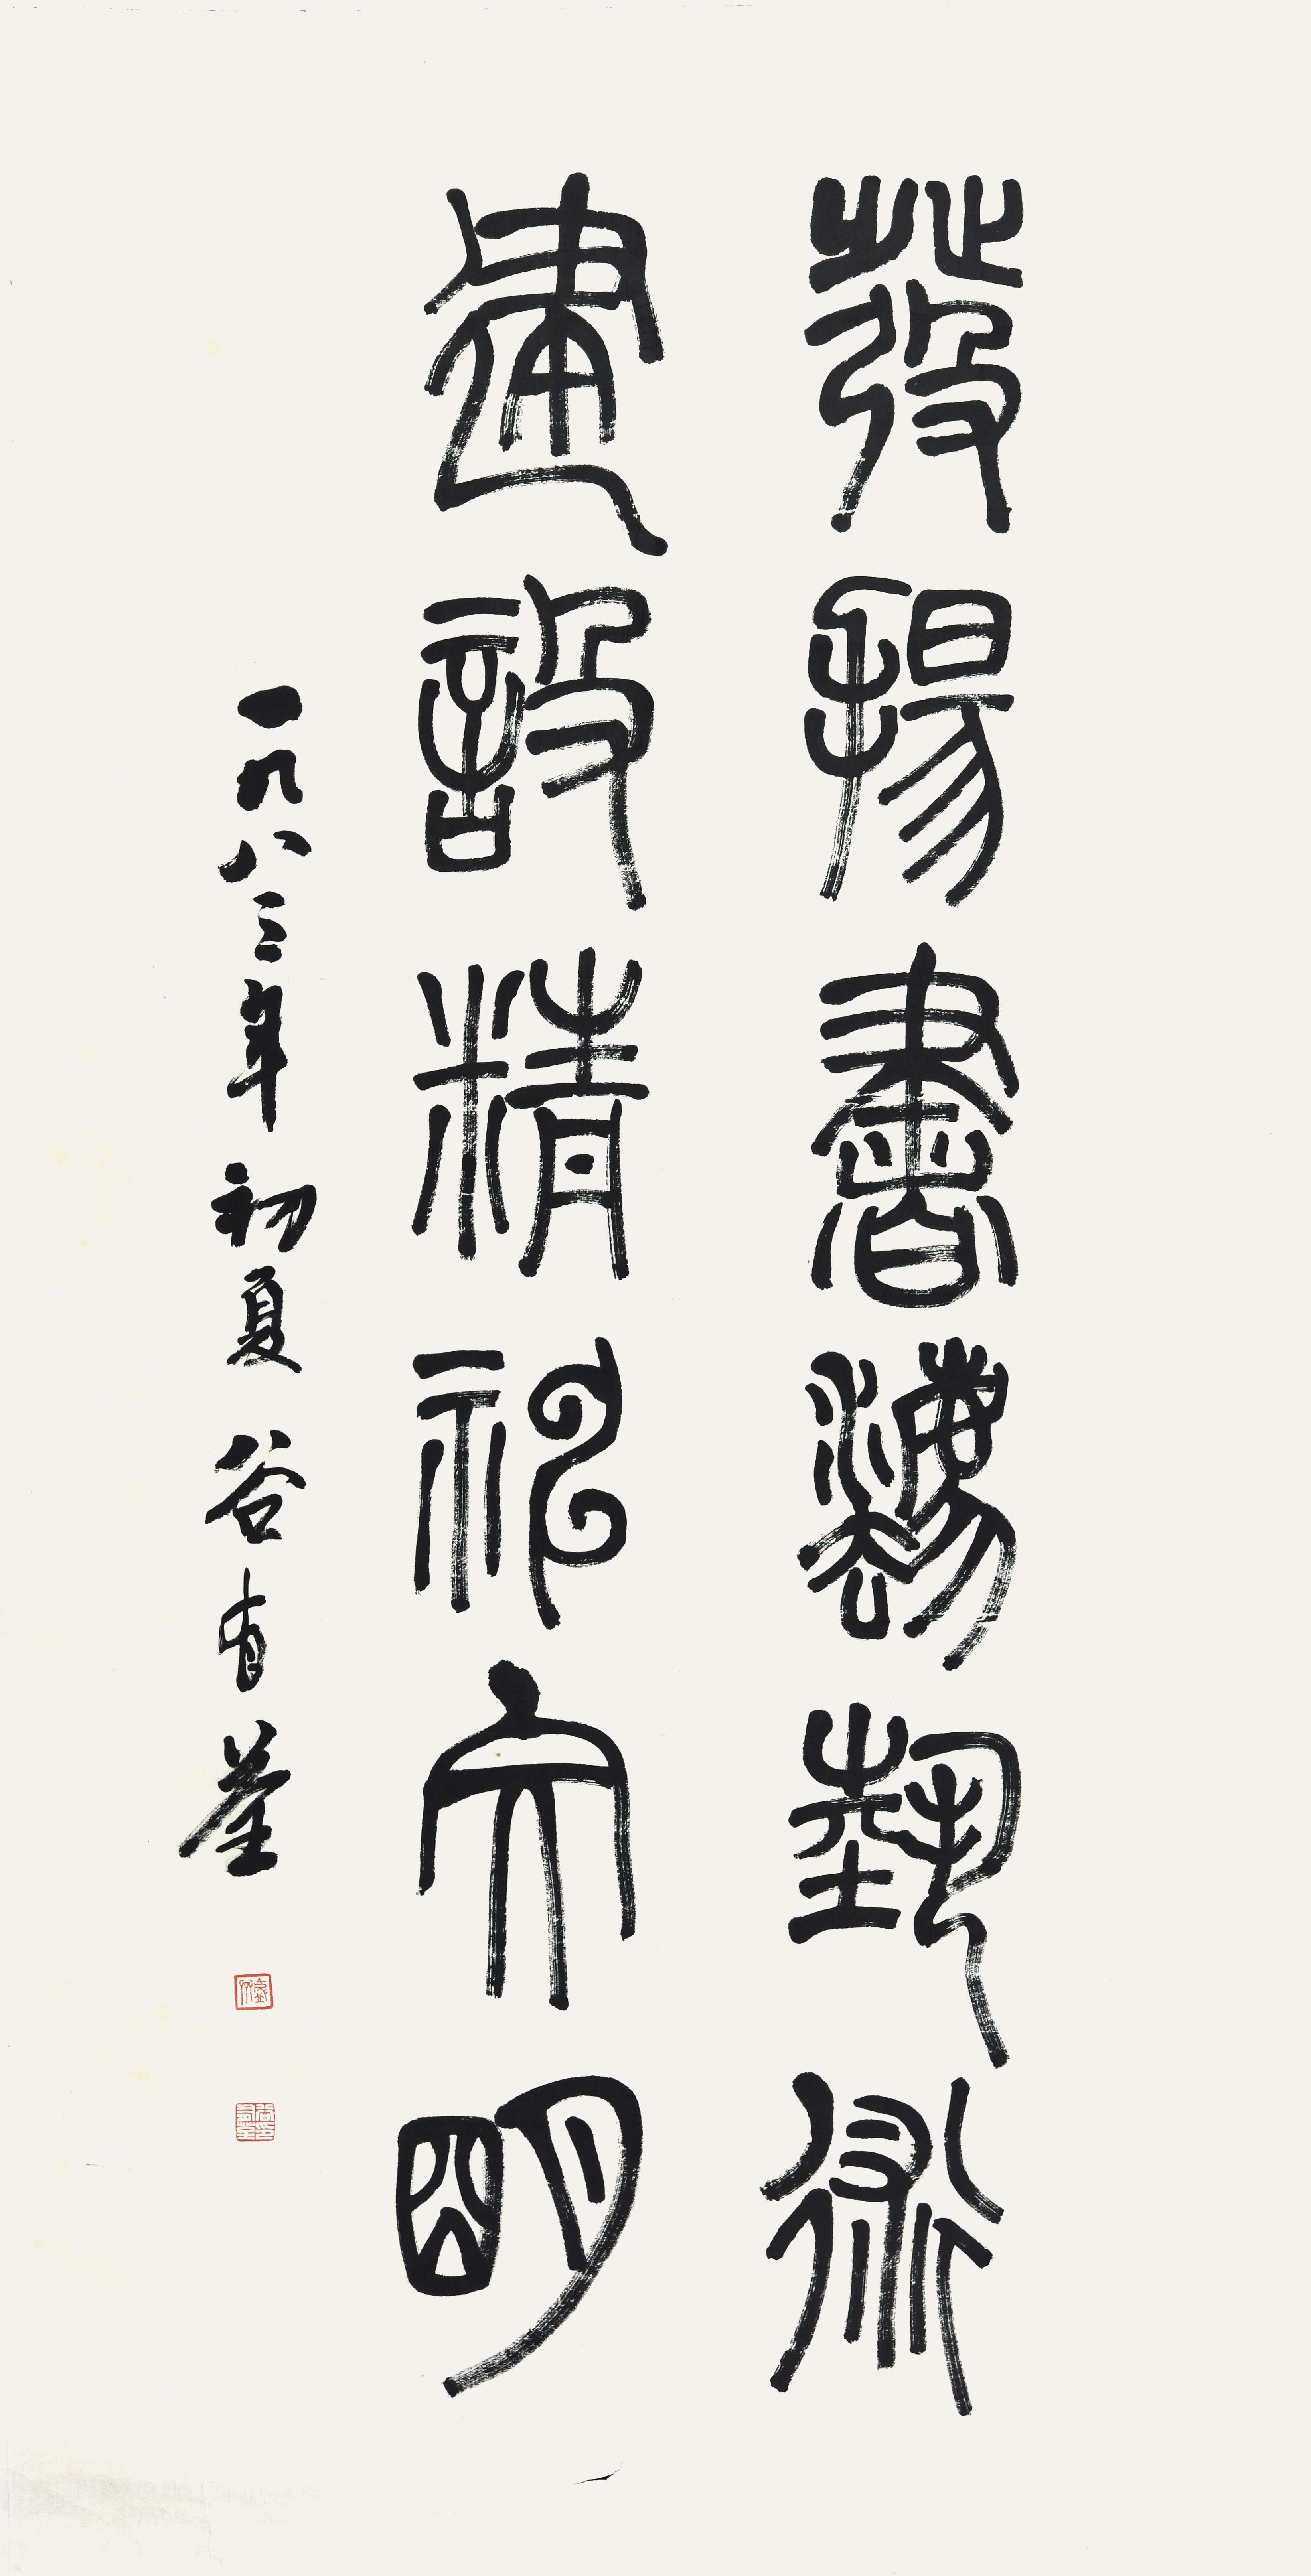 發揚書灋藝術
建設精神文明
一九八三年初夏 谷有荃